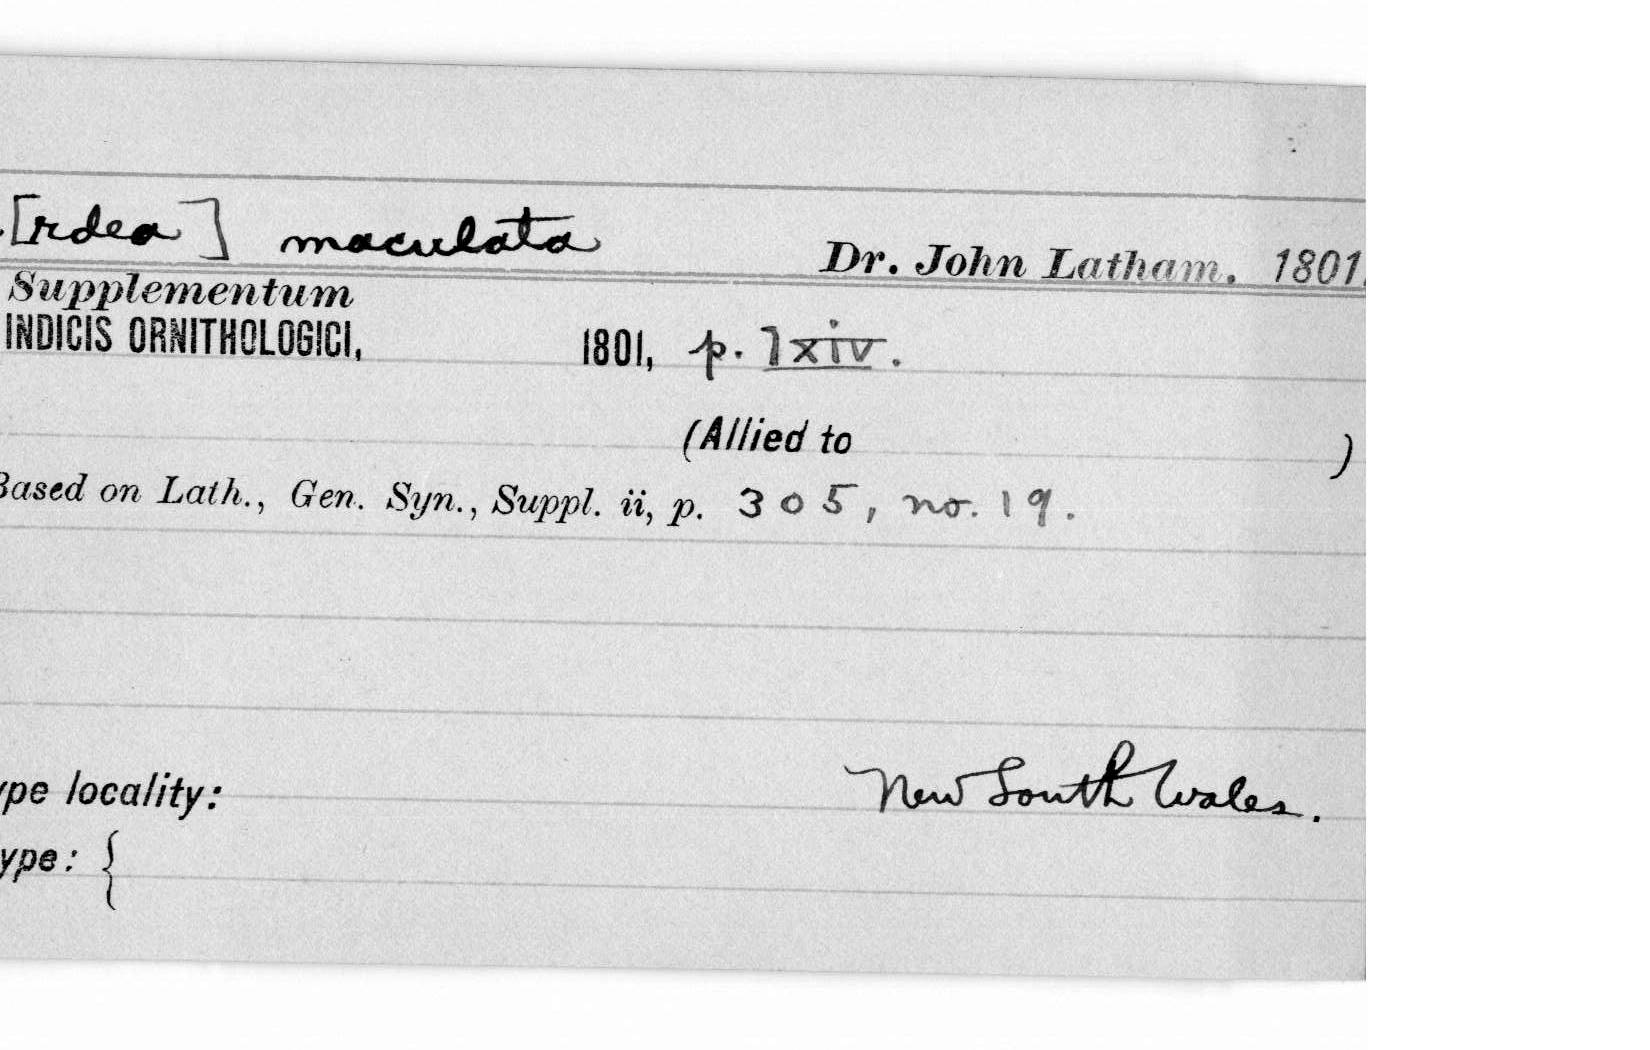 .[rdea] maculata Dr. John Latham. 1801.
Supplementum
INDICIS ORNITHOLOGICI, 1801, p. lxiv.
(Allied to )
Based on Lath., Gen. Syn., Suppl. ii, p. 305, no. 19.
ype locality: New South Wales.
ype: {